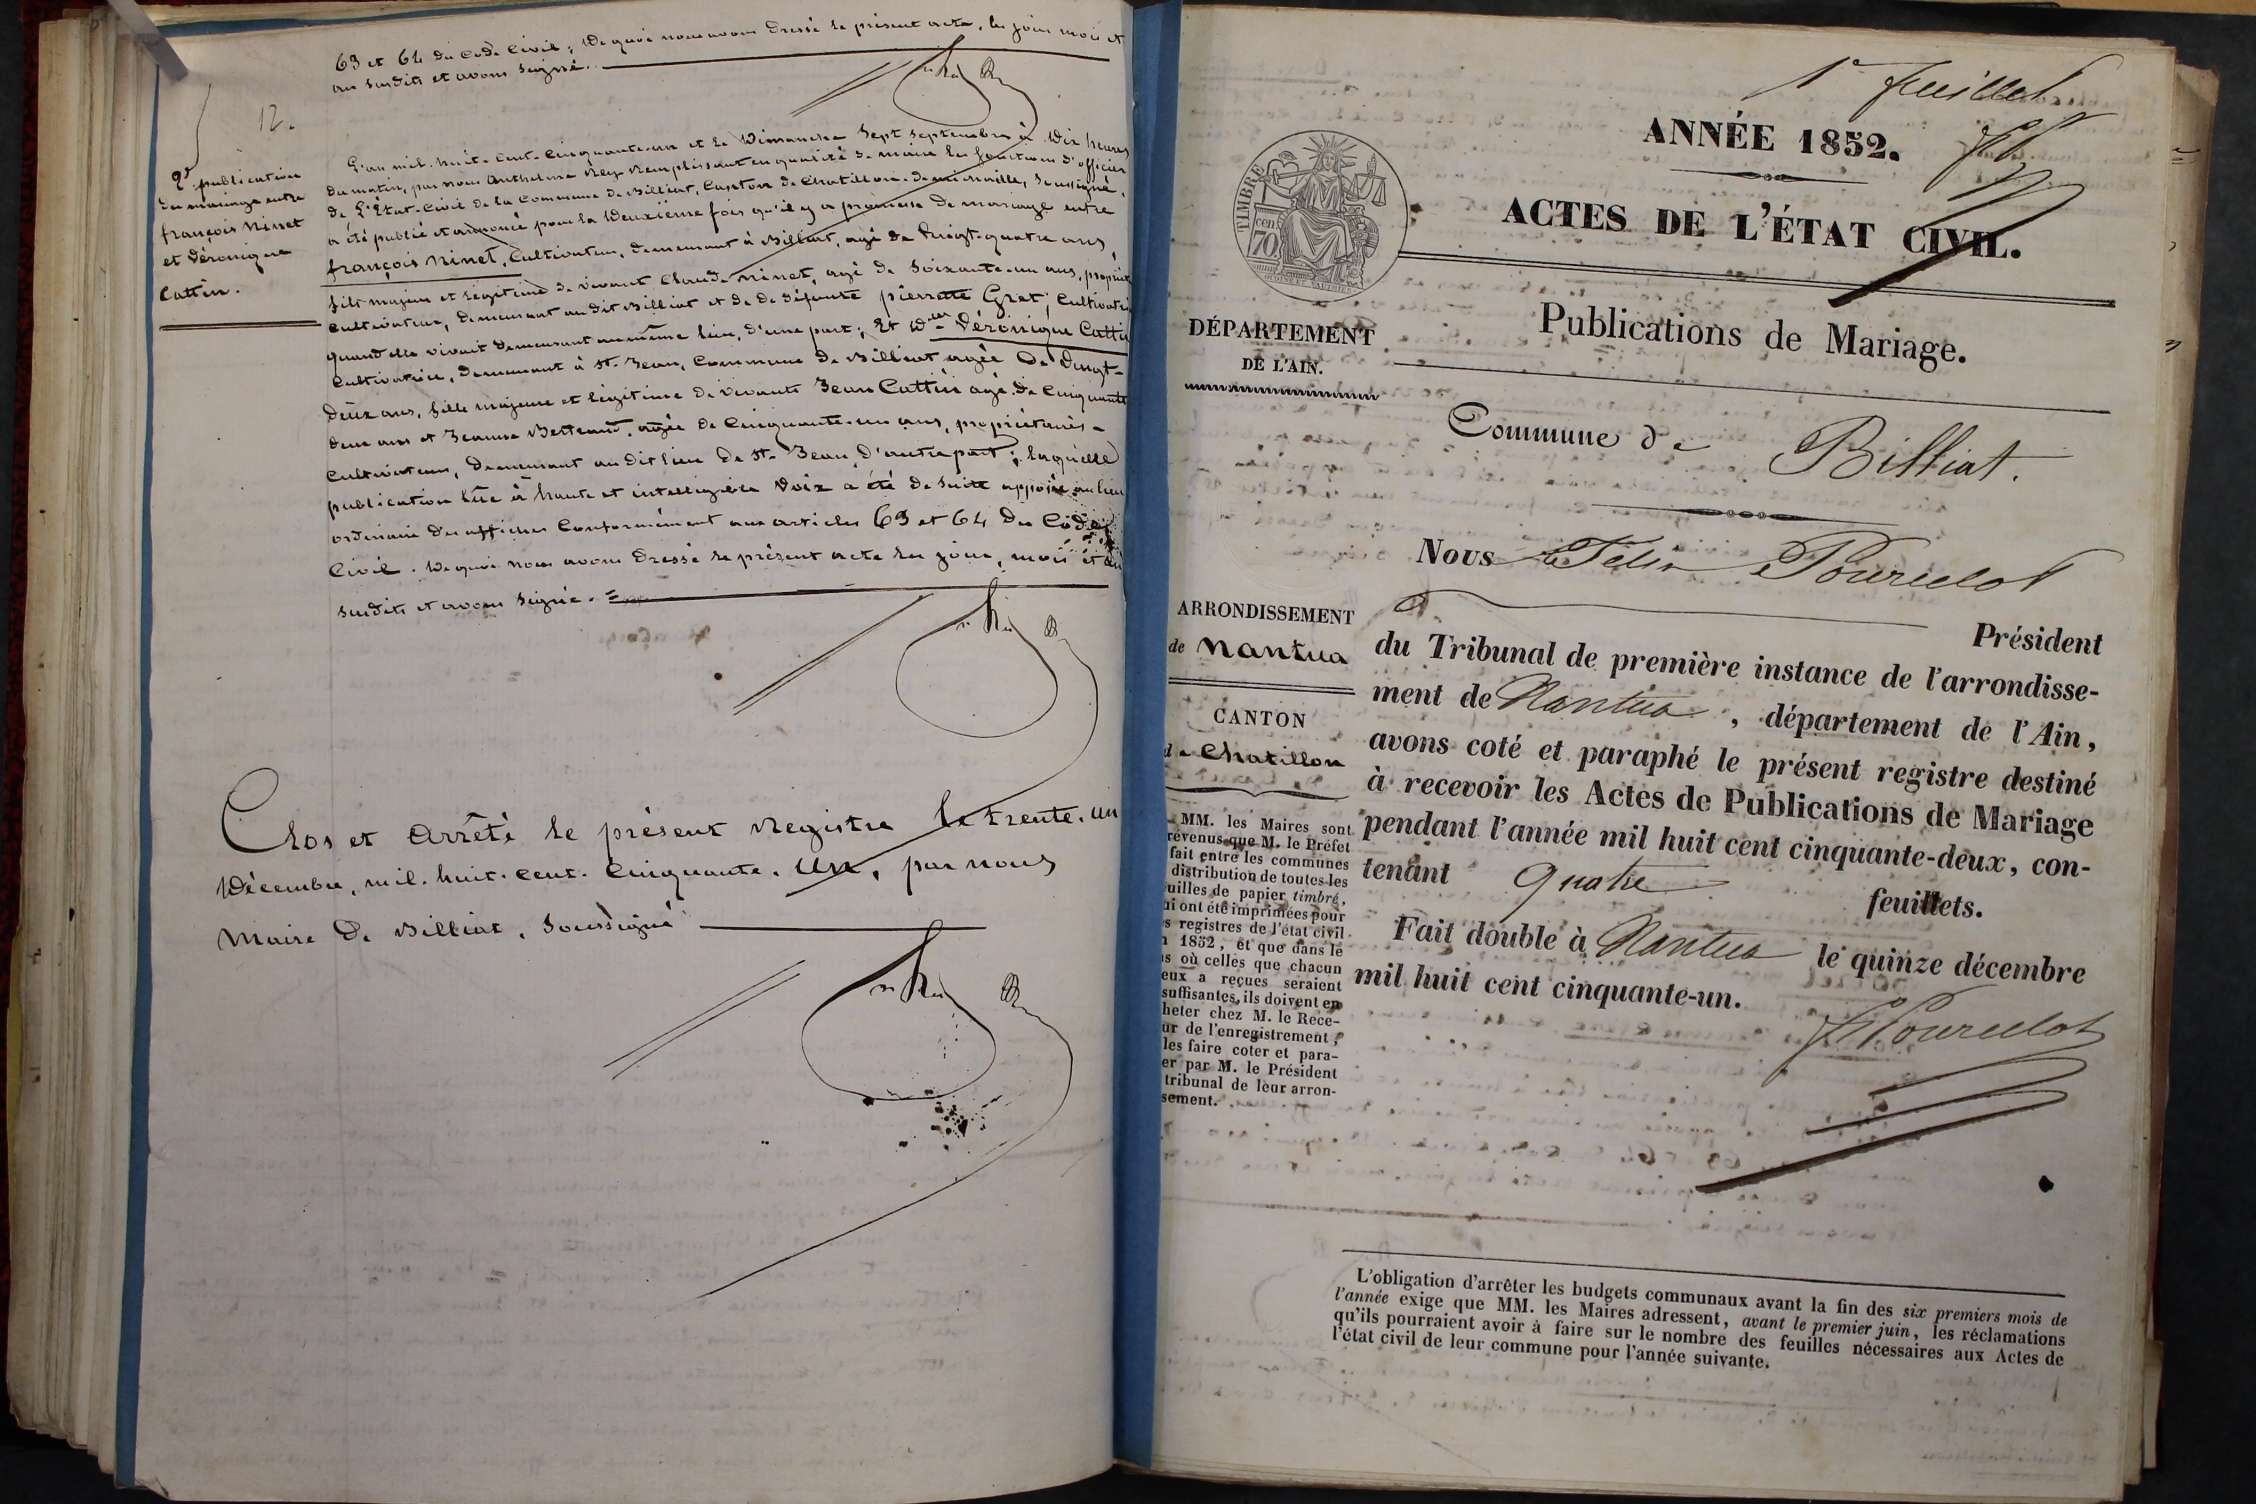 63 et 64 du Code Civil ; De quoi nous avons Dressé le présent acte, les jour mois et
an susdits et avons signé.
12.
2e publication
du mariage entre
françois Ninet
et Véronique
Cattin.
L'an mil-huit-cent-cinquante-un et le Dimanche Sept Septembre à Dix heures
du matin, par nous Anthelme Rey Remplissant en qualité de maire les fonctions d'officier
de l'État-Civil de la Commune de Billiat, Canton de Chatillon-de-michaille, Soussigné,
a été publié et annoncé pour la Deuxième fois qu'il y a promesse de mariage entre
françois Ninet, Cultivateur, demeurant à Billiat, agé de Vingt-quatre ans,
fils majeur et légitime de vivant Claude Ninet, agé de Soixante-un ans, propriét
cultivateur, demeurant au dit Billiat et de défunte pierrette Gret, Cultivatri
quand elle vivait demeurant au même lieu, d'une part ; Et Dlle Véronique Catti
Cultivatrice, demeurant à St. Jean, Commune de Billiat agée De Vingt-
deux ans, fille majeure et légitime de vivants Jean Cattin agé De Cinquante
deux ans et Jeanne Bertrand, agée de Cinquante-un ans, propriétaires-
Cultivateurs, demeurant au dit lieu de St. Jean, d'autre part ; laquelle
publication lue à haute et intelligible Voix a été de suite apposée au lieu
ordinaire des affiches Conformément aux articles 63 et 64 Du Code
Civil. De quoi nous avons Dressé le présent acte les jour, mois et an
susdits et avons signé.
Clos et Arrêté le présent Registre le trente-un
Décembre, mil-huit-cent-Cinquante-Un, par nous
Maire De Billiat, Soussigné
1er feuillet
ANNÉE 1852.
ACTES DE L'ÉTAT CIVIL.
TIMBRE
70 cen
Publications de Mariage.
DÉPARTEMENT
DE L'AIN.
Commune de Billiat.
Nous Félix Pourcelot
ARRONDISSEMENT
de Nantua
CANTON
de Chatillon
MM. les Maires sont
révenus que M. le Préfet
fait entre les communes
distribution de toutes les
uilles de papier timbré,
ui ont été imprimées pour
s registres de l'état civil
n 1852, et que dans le
s où celles que chacun
eux a reçues seraient
suffisantes, ils doivent en
heter chez M. le Rece-
ur de l'enregistrement,
les faire coter et para-
er par M. le Président
tribunal de leur arron-
sement.
Président
du Tribunal de première instance de l'arrondisse-
ment de Nantua, département de l'Ain,
avons coté et paraphé le présent registre destiné
à recevoir les Actes de Publications de Mariage
pendant l'année mil huit cent cinquante-deux, con-
tenant Quatre feuillets.
Fait double à Nantua le quinze décembre
mil huit cent cinquante-un.
F. Pourcelot
L'obligation d'arrêter les budgets communaux avant la fin des six premiers mois de
l'année exige que MM. les Maires adressent, avant le premier juin, les réclamations
qu'ils pourraient avoir à faire sur le nombre des feuilles nécessaires aux Actes de
l'état civil de leur commune pour l'année suivante.